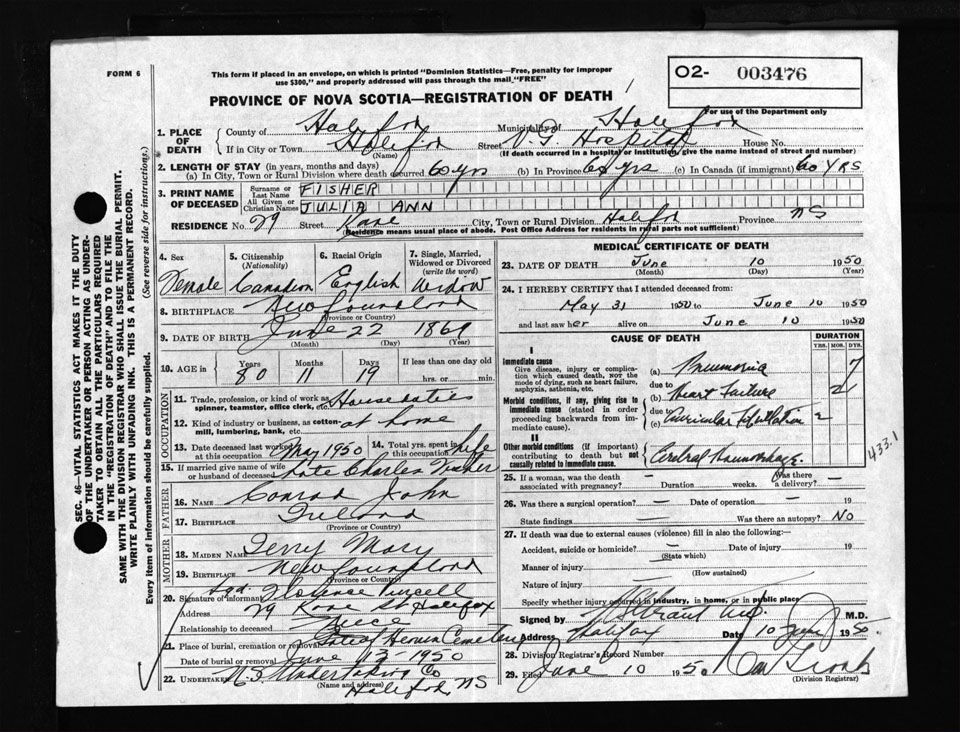 FORM 6
This form if placed in an envelope, on which is printed "Dominion Statistics—Free, penalty for improper
use $300," and properly addressed will pass through the mail "FREE"
O2- 003476
For use of the Department only
PROVINCE OF NOVA SCOTIA—REGISTRATION OF DEATH
1. PLACE OF DEATH County of Halifax Municipality of Halifax
If in City or Town Halifax (Name) Street V.G. Hospital House No.
(If death occurred in a hospital or institution, give the name instead of street and number)
2. LENGTH OF STAY (in years, months and days)
(a) In City, Town or Rural Division where death occurred 60 yrs (b) In Province 60 yrs (c) In Canada (if immigrant) 60 YRS
3. PRINT NAME OF DECEASED Surname or Last Name FISHER
All Given or Christian Names JULIA ANN
RESIDENCE No. 29 Street Kane City, Town or Rural Division Halifax Province NS
(Residence means usual place of abode. Post Office Address for residents in rural parts not sufficient)
4. Sex Female
5. Citizenship (Nationality) Canadian
6. Racial Origin English
7. Single, Married, Widowed or Divorced (write the word) Widow
8. BIRTHPLACE Newfoundland
(Province or Country)
9. DATE OF BIRTH June 22 1869
(Month) (Day) (Year)
10. AGE in Years 80 Months 11 Days 19 If less than one day old
hrs. or min.
OCCUPATION
11. Trade, profession, or kind of work as
spinner, teamster, office clerk, etc. House duties
12. Kind of industry or business, as cotton-
mill, lumbering, bank, etc. at home
13. Date deceased last worked at this occupation May 1950
14. Total yrs. spent in this occupation life
15. If married give name of wife or husband of deceased Late Charles Fisher
FATHER
16. NAME Conrad John
17. BIRTHPLACE Ireland
(Province or Country)
MOTHER
18. MAIDEN NAME Terry Mary
19. BIRTHPLACE Newfoundland
(Province or Country)
20. Signature of informant Sgd. Florence Purcell
Address 29 Kane St Halifax
Relationship to deceased Niece
21. Place of burial, cremation or removal Cemetery
Date of burial or removal June 13-1950
22. UNDERTAKER N.S. Undertaking Co
(Name and address)
Halifax NS
MEDICAL CERTIFICATE OF DEATH
23. DATE OF DEATH June 10 1950
(Month) (Day) (Year)
24. I HEREBY CERTIFY that I attended deceased from:
May 31 1950 to June 10 1950
and last saw her alive on June 10 1950
CAUSE OF DEATH
DURATION
YRS. MOS. DYS.
I
Immediate cause
Give disease, injury or complication which caused death, not the mode of dying, such as heart failure, asphyxia, asthenia, etc.
(a) Pneumonia 7
due to
Morbid conditions, if any, giving rise to immediate cause (stated in order proceeding backwards from immediate cause).
(b) Heart Failure 2
due to
(c) Auricular Fibrillation 2
II
Other morbid conditions (if important) contributing to death but not causally related to immediate cause.
Cerebral Haemorrhage
433.1
25. If a woman, was the death associated with pregnancy? — Duration weeks. Was there a delivery? —
26. Was there a surgical operation? — Date of operation — 19
State findings Was there an autopsy? No
27. If death was due to external causes (violence) fill in also the following:
Accident, suicide or homicide? — Date of injury 19
(State which)
Manner of injury
(How sustained)
Nature of injury
Specify whether injury occurred in industry, in home, or in public place
Signed by Grant M.D. M.D.
Address Halifax Date 10 June 1950
28. Division Registrar's Record Number
29. Filed June 10 1950
(Division Registrar)
SEC. 46—VITAL STATISTICS ACT MAKES IT THE DUTY
OF THE UNDERTAKER OR PERSON ACTING AS UNDER-
TAKER TO OBTAIN ALL THE PARTICULARS REQUIRED
IN THE "REGISTRATION OF DEATH" AND TO FILE THE
SAME WITH THE DIVISION REGISTRAR WHO SHALL ISSUE THE BURIAL PERMIT.
WRITE PLAINLY WITH UNFADING INK. THIS IS A PERMANENT RECORD.
Every item of information should be carefully supplied. (See reverse side for instructions.)